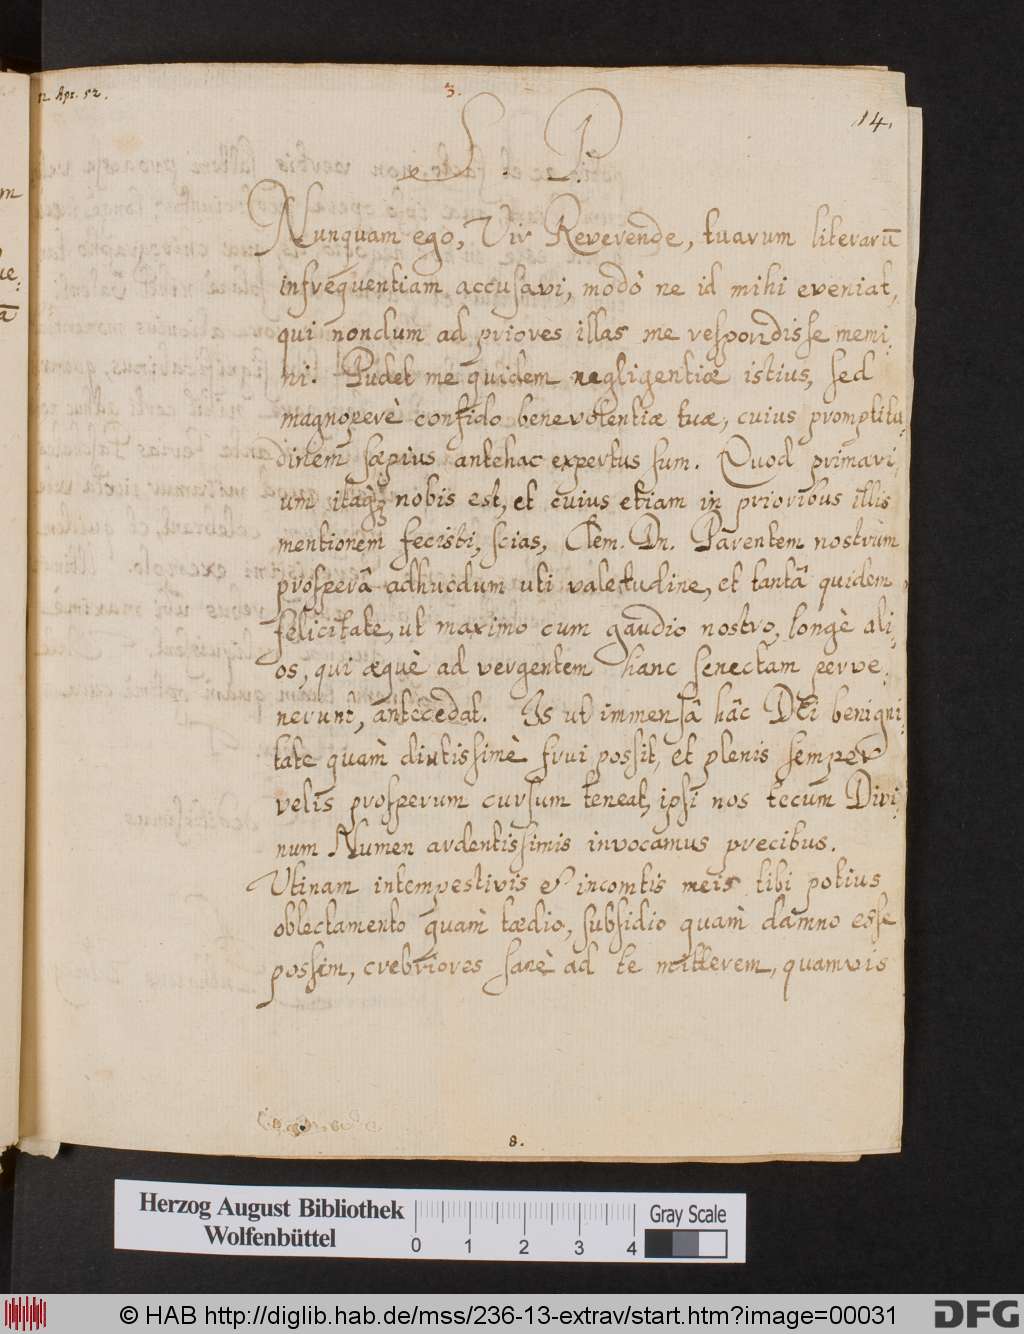 12. Apr. 52.
3.
14.
S. P.
Nunquam ego, Vir Reverende, tuarum literarū
infrequentiam accusavi, modò ne id mihi eveniat,
qui nondum ad priores illas me respondisse memi,
ni. Pudet me quidem negligentiæ istius, sed
magnoperè confido benevolentiæ tuæ, cuius promptitu,
dinem sæpius antehac expertus sum. Quod primari,
um itaq; nobis est, et cuius etiam in prioribus illis
mentionem fecisti, scias, Clem. Dn. Parentem nostrum
prosperâ adhucdum uti valetudine, et tantâ quidem
felicitate, ut maximo cum gaudio nostro, longè ali,
os, qui æquè ad vergentem hanc senectam perve,
nerunt, antecedat. Is ut immensâ hâc DEi benigni,
tate quàm diutissimè frui possit, et plenis semper
velis prosperum cursum teneat, ipsi nos tecum Divi,
num Numen ardentissimis invocamus precibus.
Utinam intempestivis & incomtis meis tibi potius
oblectamento quàm tædio, subsidio quàm damno esse
possem, crebriores sanè ad te mitterem, quamvis
8.
Herzog August Bibliothek
Wolfenbüttel
0 1 2 3 4
Gray Scale
© HAB http://diglib.hab.de/mss/236-13-extrav/start.htm?image=00031
DFG